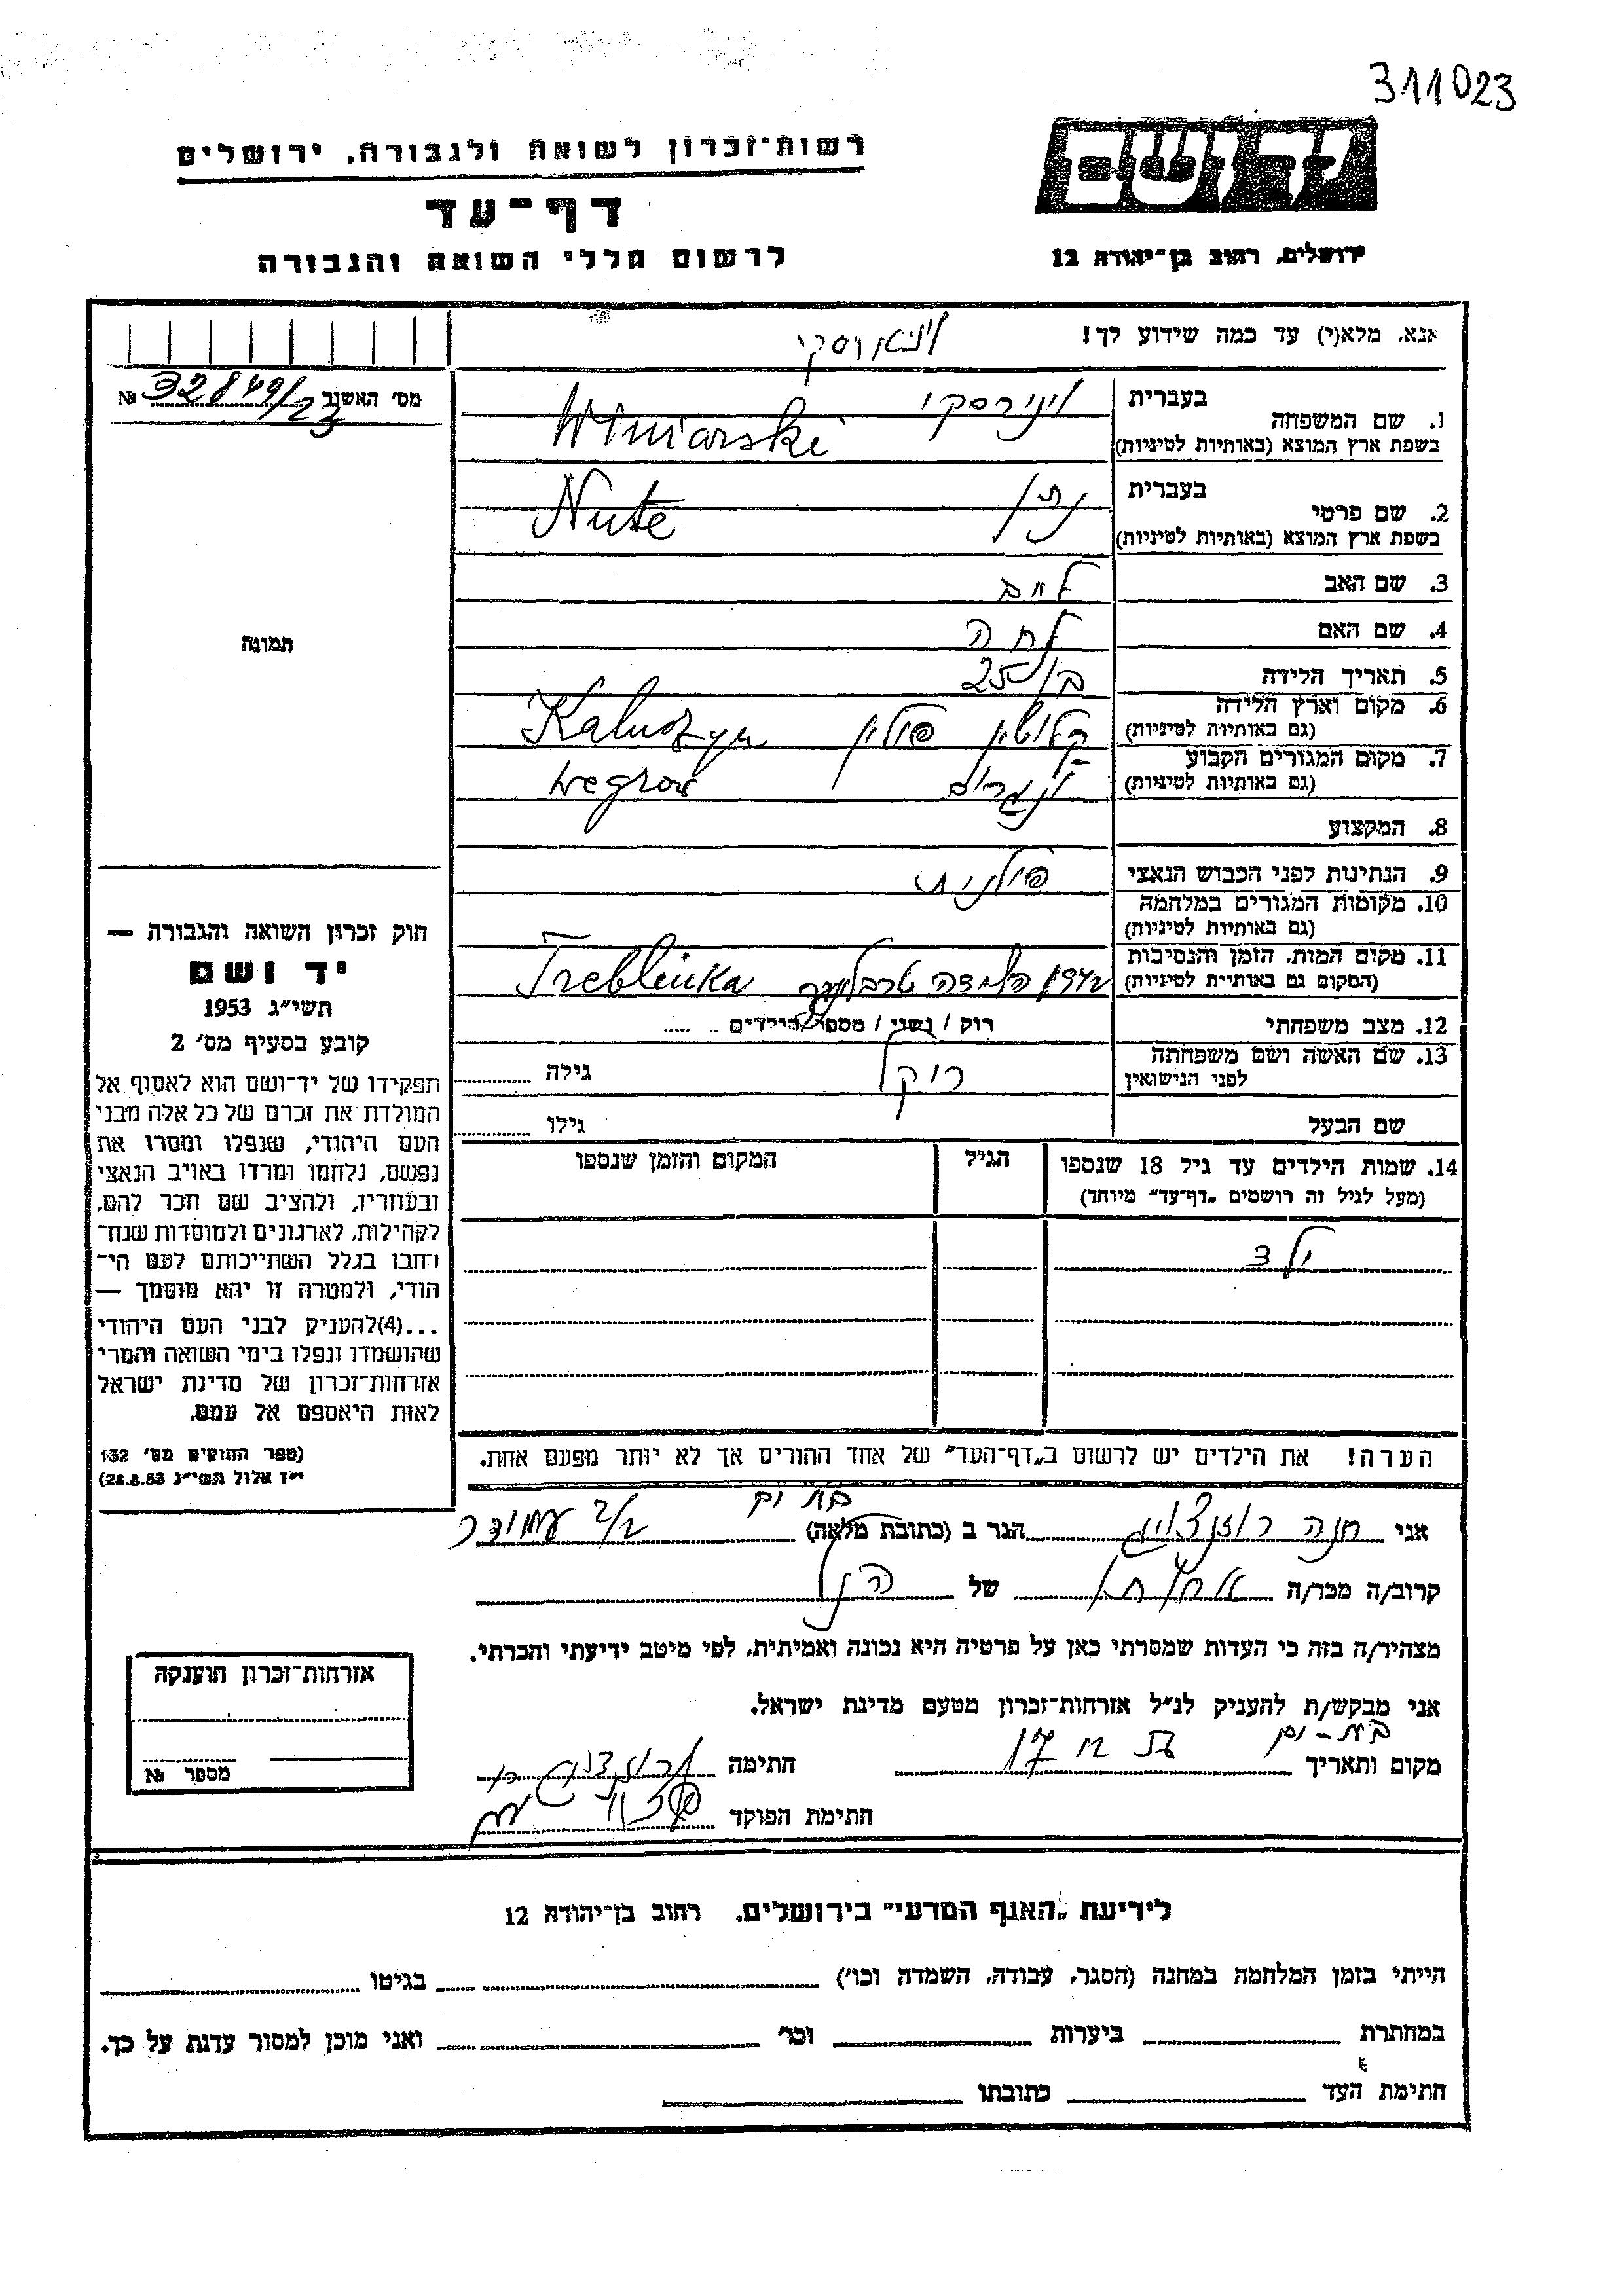 311023
יד ושם
רשות־זכרון לשואה ולגבורה, ירושלים
דף־עד
ירושלים, רחוב בן־יהודה 12
לרשום חללי השואה והגבורה
אנא, מלא(י) עד כמה שידוע לך!
ויניארסקי
מס' האשנר № 32849/23
1. שם המשפחה
בעברית ויניירסקי
בשפת ארץ המוצא (באותיות לטיניות) Winiarski
2. שם פרטי
בעברית נתן
בשפת ארץ המוצא (באותיות לטיניות) Nute
3. שם האב
4. שם האם
5. תאריך הלידה בן 25
6. מקום וארץ הלידה
(גם באותיות לטיניות) קלושין פולין Kaluszyn
7. מקום המגורים הקבוע
(גם באותיות לטיניות) ונגרוב Wegrow
8. המקצוע
9. הנתינות לפני הכבוש הנאצי פולנית
10. מקומות המגורים במלחמה
(גם באותיות לטיניות)
11. מקום המות, הזמן והנסיבות
(המקום גם באותיות לטיניות) 1942 השמדה טרבלינקה Treblinka
12. מצב משפחתי רוק / נשוי / מספר הילדים
13. שם האשה ושם משפחתה
לפני הנישואין רוקל גילה
שם הבעל גילו
14. שמות הילדים עד גיל 18 שנספו
(מעל לגיל זה רושמים „דף־עד" מיוחד)
הגיל
המקום והזמן שנספו
ילד
הערה! את הילדים יש לרשום ב„דף־העד" של אחד ההורים אך לא יותר מפעם אחת.
תמונה
חוק זכרון השואה והגבורה —
יד ושם
תשי"ג 1953
קובע בסעיף מס' 2
תפקידו של יד־ושם הוא לאסוף אל
המולדת את זכרם של כל אלה מבני
העם היהודי, שנפלו ומסרו את
נפשם, נלחמו ומרדו באויב הנאצי
ובעוזריו, ולהציב שם וזכר להם,
לקהילות, לארגונים ולמוסדות שנח־
רחבו בגלל השתייכותם לעם הי־
הודי, ולמטרה זו יהא מוסמך —
...(4)להעניק לבני העם היהודי
שהושמדו ונפלו בימי השואה והמרי
אזרחות־זכרון של מדינת ישראל
לאות היאספם אל עמם.
(ספר החוקים מס' 132
י"ז אלול תשי"ג 28.8.53)
בת ים
אני חנה רוזנצוויג הגר ב (כתובת מלאה)
קרוב/ה מכר/ה של הנ"ל
מצהיר/ה בזה כי העדות שמסרתי כאן על פרטיה היא נכונה ואמיתית, לפי מיטב ידיעתי והכרתי.
אני מבקש/ת להעניק לנ"ל אזרחות־זכרון מטעם מדינת ישראל.
בת-ים
מקום ותאריך חתימה
חתימת הפוקד
אזרחות־זכרון הוענקה
מספר №
לידיעת „האגף המדעי" בירושלים. רחוב בן־יהודה 12
הייתי בזמן המלחמה במחנה (הסגר, עבודה, השמדה וכו') בגיטו
במחתרת ביערות וכו' ואני מוכן למסור עדות על כך.
חתימת העד כתובתו